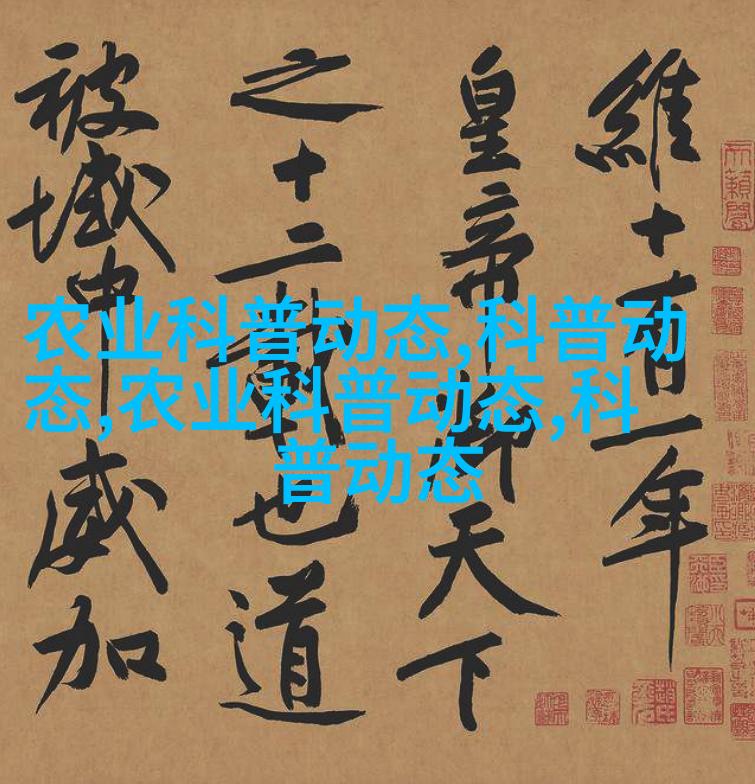 農业科普动态,科普动
态,农业科普动态,科
普动态
維十有一年
皇帝御天下
之十二載也道
被域中威加